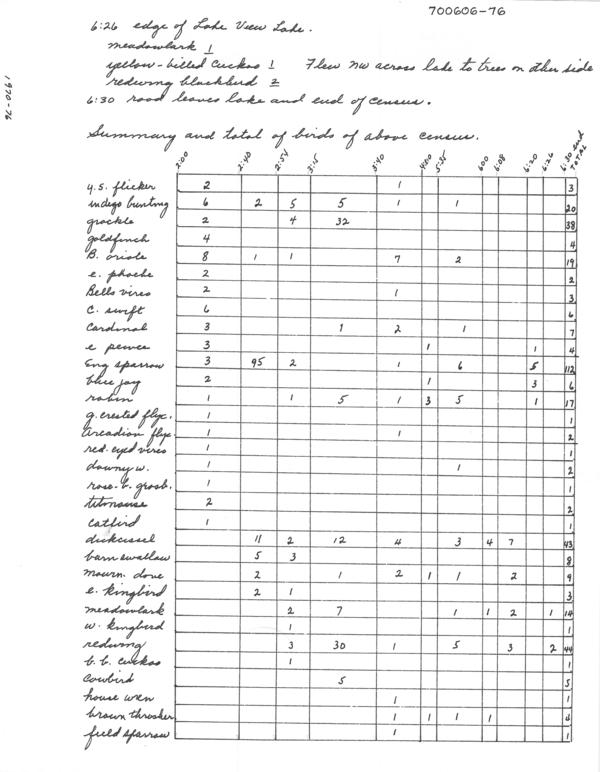 700606-76
6:26 edge of Lake View Lake.
meadowlark 1
yellow-billed Cuckoo 1 Flew NW across lake to trees on other side
redwing blackbird 2
6:30 road leaves lake and end of census.
1970-76
Summary and total of birds of above census.
2:00 2:40 2:54 3:15 3:40 4:00 5:35 6:00 6:08 6:20 6:26 6:30 end TOTAL
y.s. flicker 2 1 3
indego bunting 6 2 5 5 1 1 20
grackle 2 4 32 38
goldfinch 4 4
B. oriole 8 1 1 7 2 19
e. phoebe 2 2
Bells vireo 2 1 3
C. swift 6 6
Cardinal 3 1 2 1 7
e pewee 3 1 1 4
Eng sparrow 3 95 2 1 6 5 112
blue jay 2 1 3 6
robin 1 1 5 1 3 5 1 17
g. crested flyc. 1 1
arcadian flyc. 1 1 2
red-eyed vireo 1 1
downy w. 1 1 2
rose-b. grosb. 1 1
titmouse 2 2
catbird 1 1
dickcissel 11 2 12 4 3 4 7 43
barn swallow 5 3 8
mourn. dove 2 1 2 1 1 2 9
e. kingbird 2 1 3
meadowlark 2 7 1 1 2 1 14
w. kingbird 1 1
redwing 3 30 1 5 3 2 44
b.b. cuckoo 1 1
Cowbird 5 5
house wren 1 1
brown thrasher 1 1 1 1 4
field sparrow 1 1